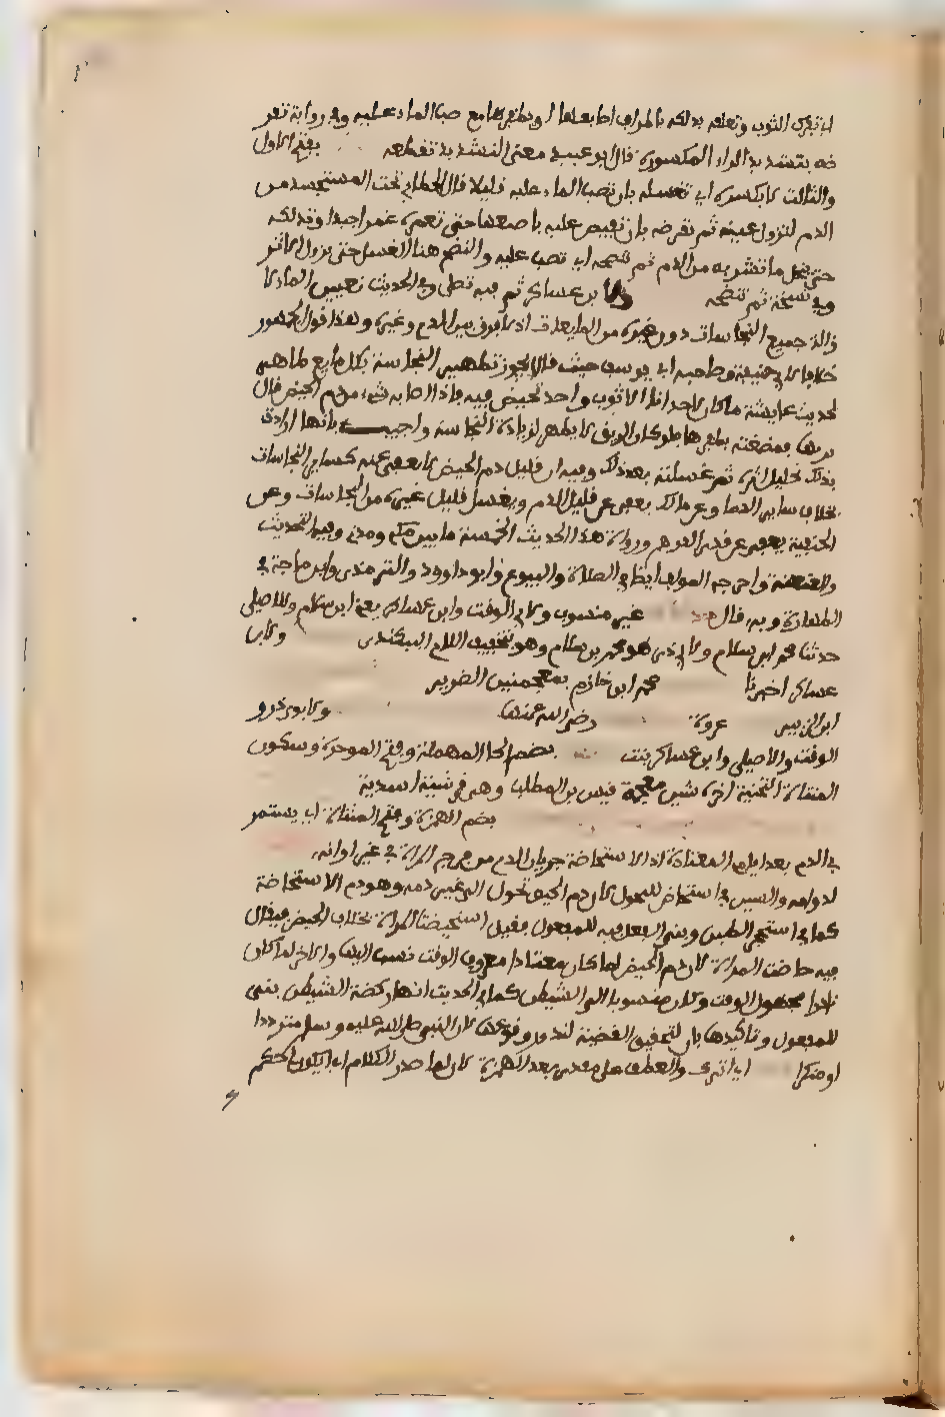 اي تفرك الثوب وتقلعه بدلكه باطراف اصابعها او بظفرها مع صب الماء عليه وفي رواية تقر
ضه بتشديد الراء المكسورة قال ابو عبيد معنى التشديد تقطعه بفتح الاول
والثالث لا بكسره اي تغسله بان تصب الماء عليه قليلا قليلا قال الخطابي تحت المستجسد من
الدم لتزول عينه ثم تقرضه بان تقبض عليه باصبعها حتى تغمزه غمزا جيدا وتدلكه
حتى ينحل ما تشربه من الدم ثم تنضحه اي تصب عليه والنضح هنا الغسل حتى يزول الاثر
وفي نسخة ثم تنضحه ولابن عساكر ثم فيه تصلي وفي الحديث تعيين الماء لا
زالة جميع النجاسات دون غيره من المايعات اذ لا فرق بين الدم وغيره وهذا قول الجمهور
خلافا لابي حنيفة وصاحبه ابي يوسف حيث قالا يجوز تطهير النجاسة بكل مايع طاهر
لحديث عايشة ما كان لاحدانا الا ثوب واحد تحيض فيه فاذا اصابه شيء من دم الحيض قال
بريقها فمصعته بظفرها فلو كان الريق لا يطهر لزيادة النجاسة واجيب بانها ارادت
بذلك تحليل اثره ثم غسلته بعد ذلك وفيه ان قليل دم الحيض لا يعفى عنه كساير النجاسات
بخلاف ساير الدما وعن مالك يعفى عن قليل الدم ويغسل قليل غيره من النجاسات وعن
الحنفية يعفى عن قدر الدرهم ورواة هذا الحديث الخمسة ما بين مكي ومدني وفيه التحديث
والعنعنة واخرجه المولف ايضا في الصلاة والبيوع وابو داوود والترمذي وابن ماجة في
الطهارة وبه قال غير منسوب ولابي الوقت وابن عساكر يعني ابن سلام وللاصيلي
حدثنا محمد ابن سلام ولابي ذر هو محمد بن سلام وهو بتخفيف اللام البيكندي ولابن
عساكر اخبرنا محمد ابن خازم بمعجمتين الضرير
ابن الزبير عروة رضي الله عنها ولابوي ذر و
الوقت والاصيلي وابن عساكر بنت بضم الحا المهملة وفتح الموحدة وسكون
المثناة التحتية اخره شين معجمة قيس بن المطلب وهي قرشية اسدية
بضم الهمزة وفتح المثناة اي يستمر
بي الدم بعد ايامي المعتادة اذ الاستحاضة جريان الدم من فرج المراة في غير اوانه
لدوامه والسين في استحاض للتحول لان دم الحيض تحول الى غير دمه وهو دم الاستحاضة
كما في استحجر الطين وبني الفعل فيه للمفعول فقيل استحيضت المراة بخلاف الحيض فيقال
فيه حاضت المراة لان دم الحيض لما كان معتادا معروف الوقت نسب اليها والاخر لما كان
نادرا مجهول الوقت وكان منسوبا الى الشيطان كما في الحديث انها ركضة الشيطان بني
للمفعول وتاكيدها بان لتحقيق القضية لندور وقوعها لا ان النبي صلى الله عليه وسلم مترددا
او منكرا اي اترك والعطف على مقدر بعد الهمزة لان لها صدر الكلام اي ايكون لي حكم